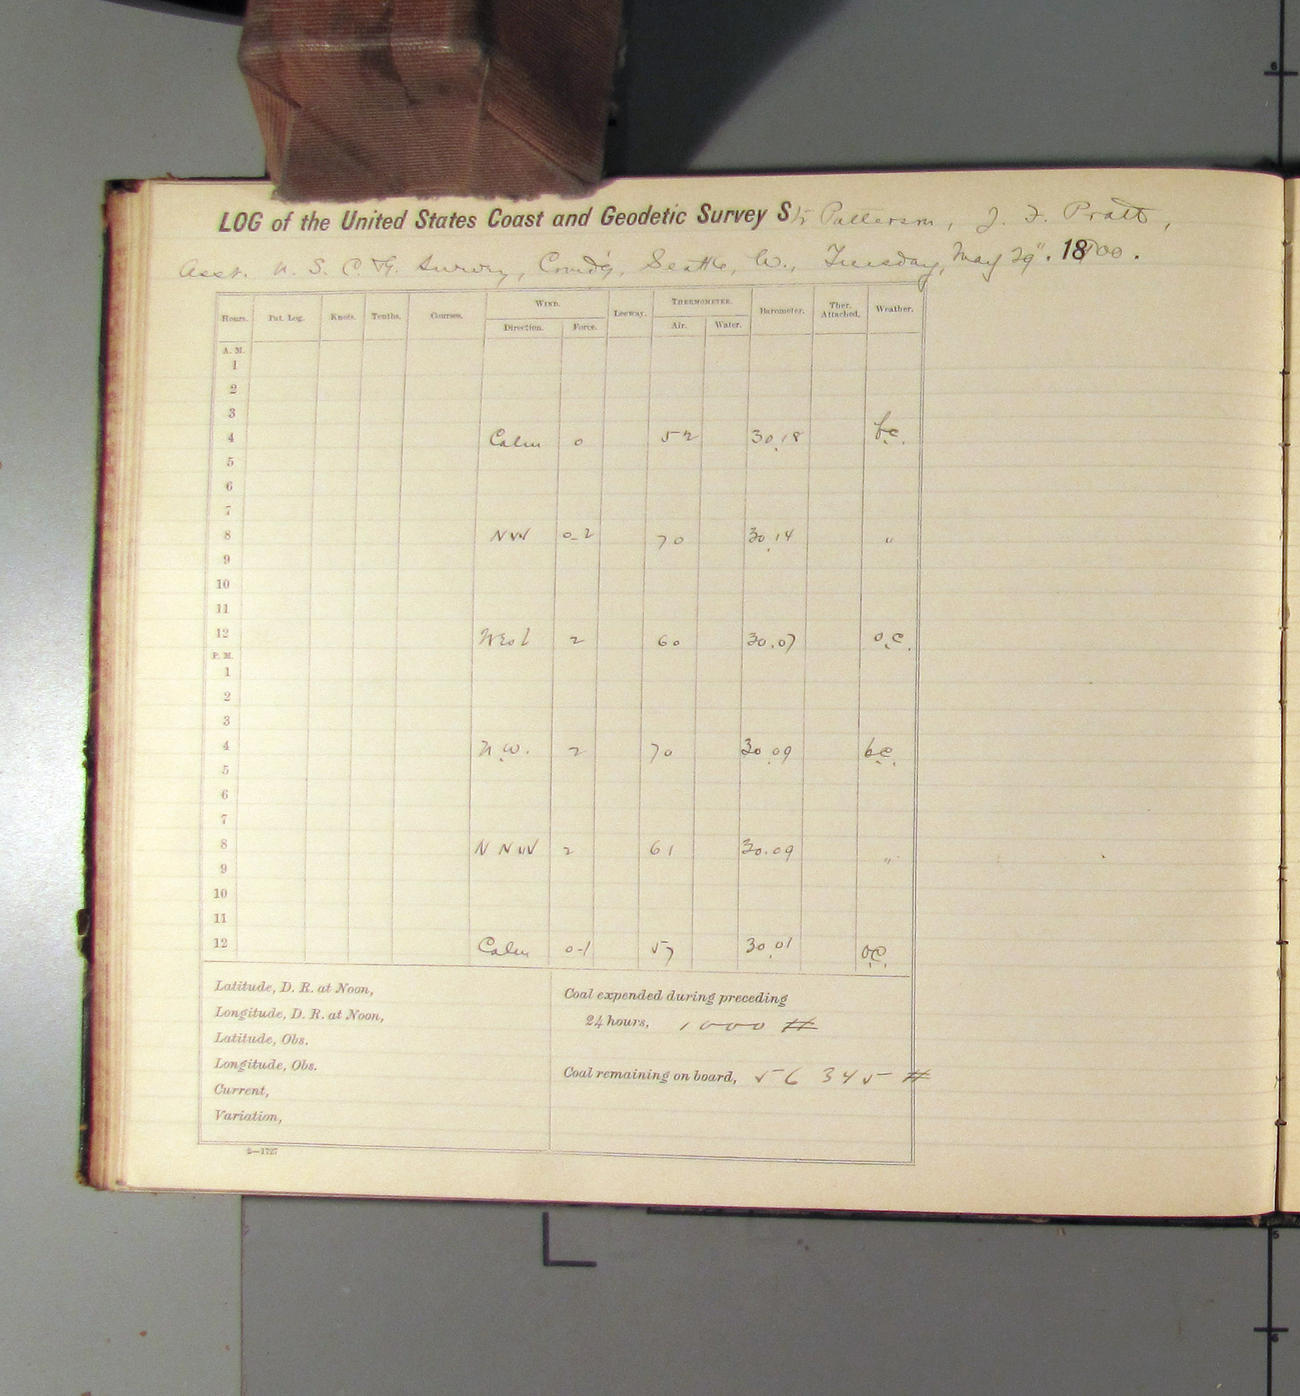 LOG of the United States Coast and Geodetic Survey Str Patterson, J. F. Pratt,
Asst. U. S. C. & G. Survey, Comd'g, Seattle, W., Tuesday, May 29", 1900.
Hours. Pat. Log. Knots. Tenths. Courses. WIND. Direction. Force. Leeway. THERMOMETER. Air. Water. Barometer. Ther. Attached. Weather.
A. M.
1
2
3
4 Calm 0 52 30.18 b.c.
5
6
7
8 NW 0-2 70 30.14 "
9
10
11
12 West 2 60 30.07 o.c.
P. M.
1
2
3
4 N.W. 2 70 30.09 b.c.
5
6
7
8 NNW 2 61 30.09 "
9
10
11
12 Calm 0-1 57 30.01 o.c.
Latitude, D. R. at Noon,
Longitude, D. R. at Noon,
Latitude, Obs.
Longitude, Obs.
Current,
Variation,
Coal expended during preceding
24 hours, 1000 #
Coal remaining on board, 56 345 #
2—1727
6
5
6